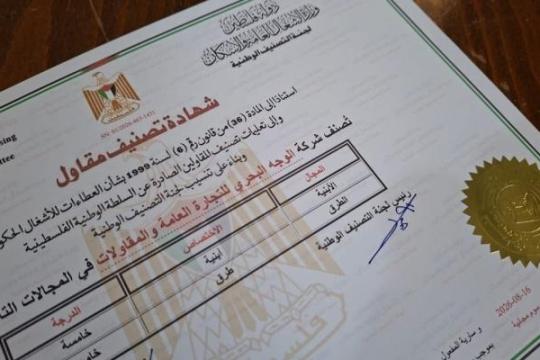 دولة فلسطين
وزارة الأشغال العامة والإسكان
لجنة التصنيف الوطنية
شهادة تصنيف مقاول
استناداً إلى المادة (36) من قانون رقم (6) لسنة 1999 بشأن العطاءات للأشغال الحكو
وإلى تعليمات تصنيف المقاولين الصادرة عن السلطة الوطنية الفلسطينية
وبناءً على تنسيب لجنة التصنيف الوطنية
تصنف شركة الوجه البحري للتجارة العامة و المقاولات في المجالات التا
المجال الاختصاص الدرجة
الأبنية ابنية خامسة
الطرق طرق خامسة
رئيس لجنة التصنيف الوطنية
2026-08-16